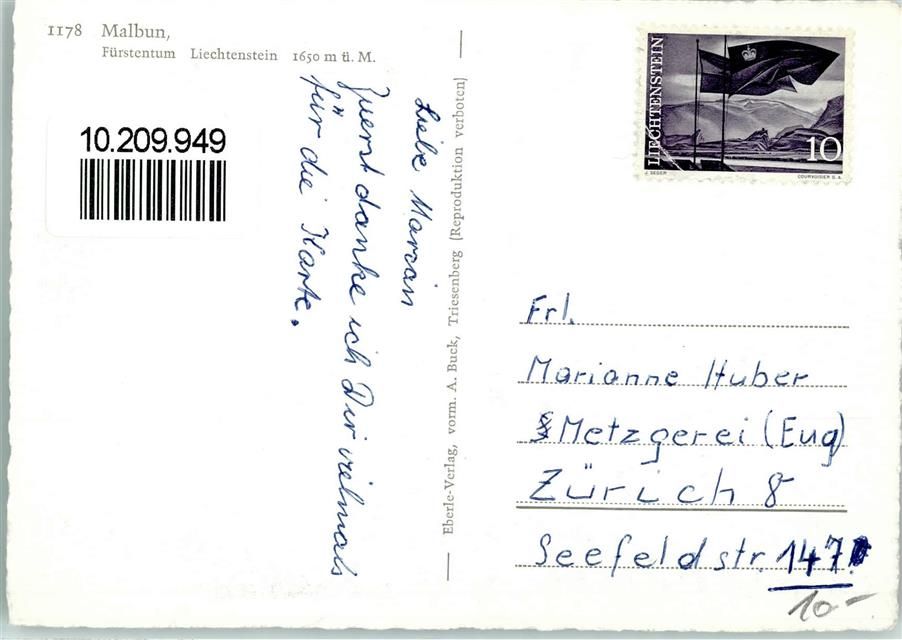 1178 Malbun,
Fürstentum Liechtenstein 1650 m ü. M.
10.209.949
Liebe Marian
Zuerst danke ich Dir vielmals
für die Karte.
Eberle-Verlag, vorm. A. Buck, Triesenberg (Reproduktion verboten)
LIECHTENSTEIN
10
J. SEGER
COURVOISIER S.A.
Frl.
Marianne Huber
Metzgerei (Eug)
Zürich 8
Seefeldstr. 147
10.-